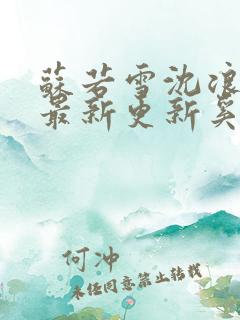 蘇若雪沈浪
最新更新奚
何沖
未经同意禁止转载